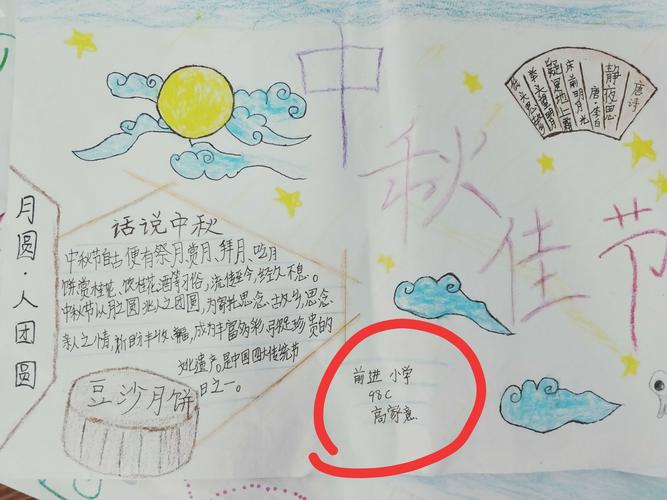 中秋佳节
唐诗
静夜思
唐·李白
床前明月光
疑是地上霜
举头望明月
低头思故乡
月圆·人团圆
话说中秋
中秋节自古便有祭月、赏月、拜月、吃月
饼、赏桂花、饮桂花酒等习俗，流传至今，经久不息。
中秋节以月之圆兆人之团圆，为寄托思念故乡，思念
亲人之情，祈盼丰收、幸福，成为丰富多彩、弥足珍贵的
文化遗产。是中国四大传统节
日之一。
豆沙月饼
前进小学
98C
高家意